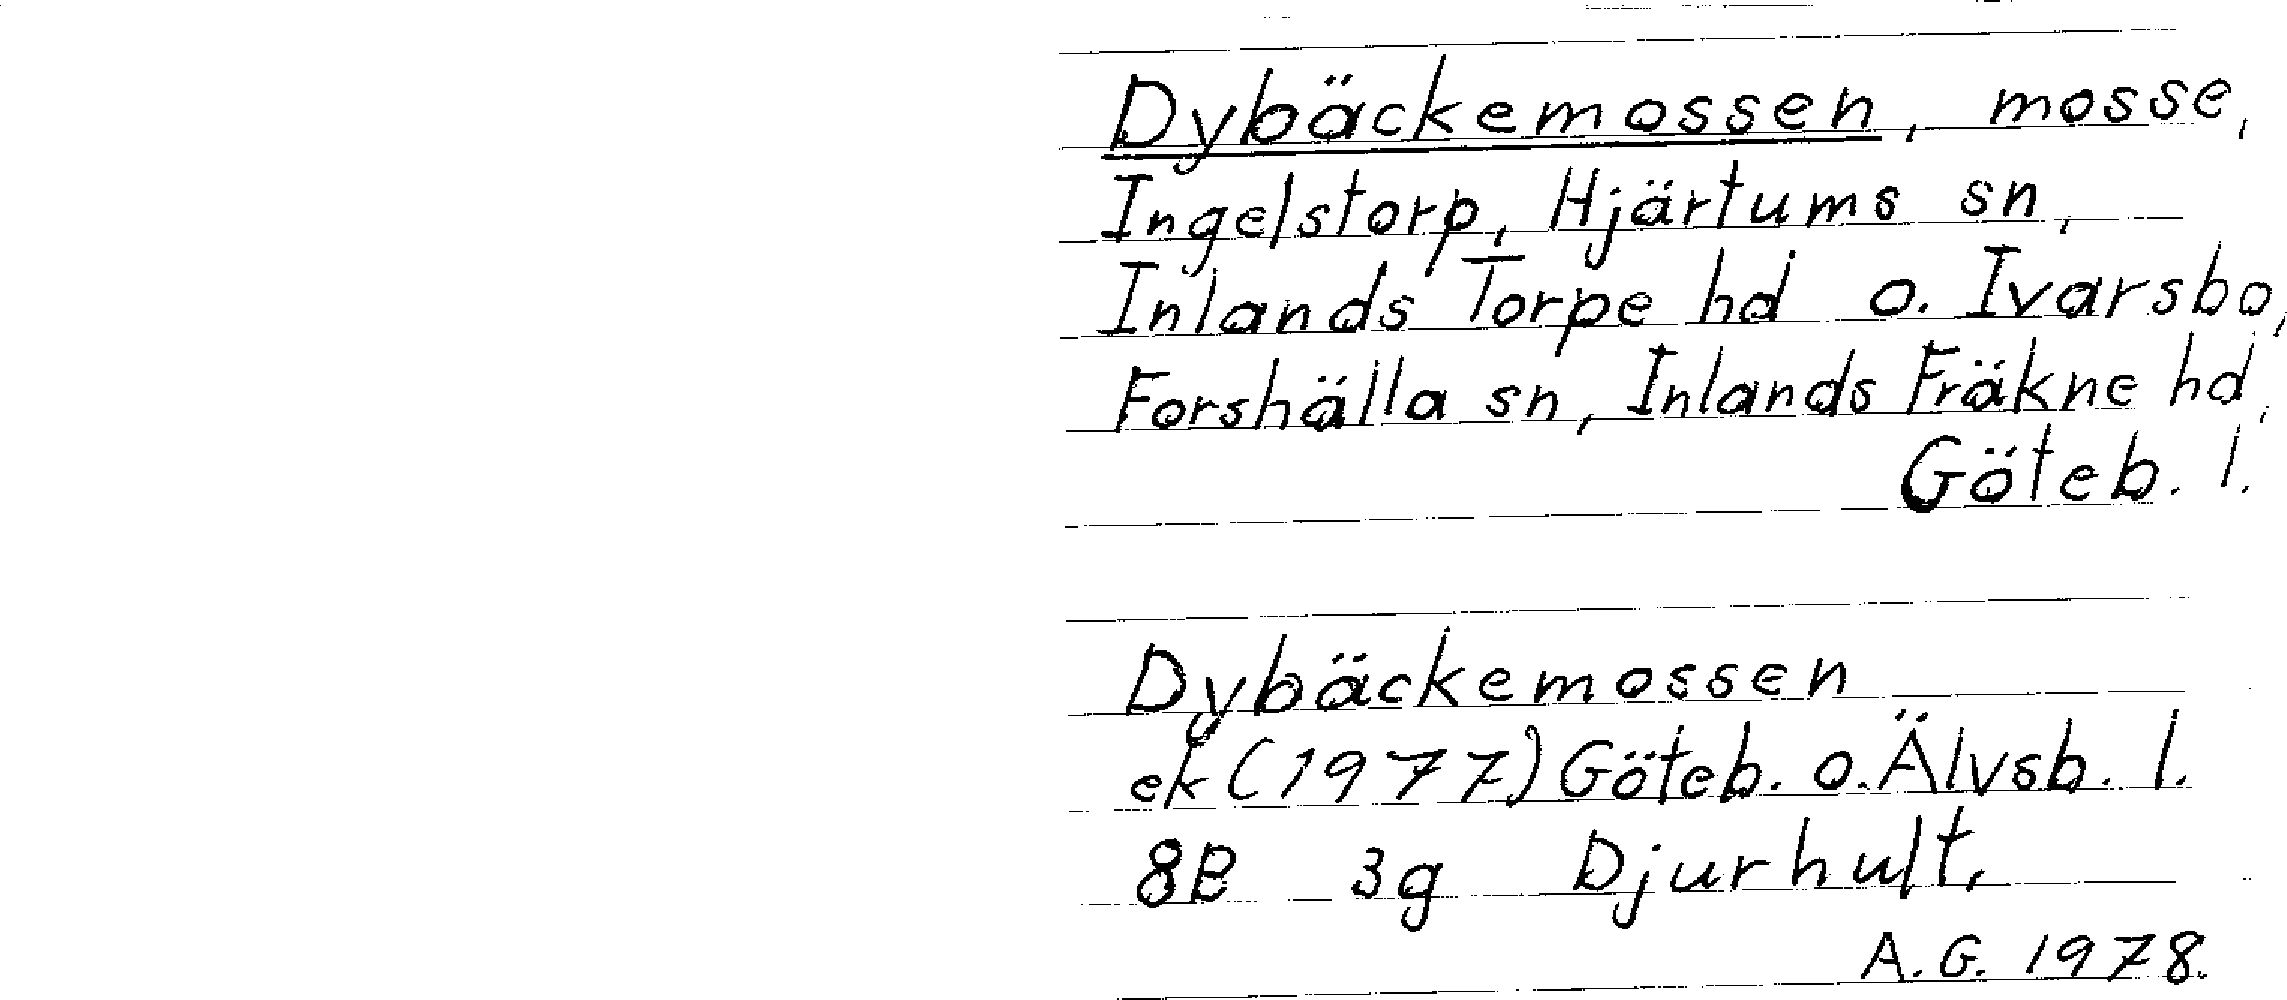 Dybäckemossen, mosse,
Ingelstorp, Hjärtums sn,
Inlands Torpe hd o. Ivarsbo,
Forshälla sn, Inlands Fräkne hd,
Göteb. l.
Dybäckemossen
ek (1977) Göteb. o. Älvsb. l.
8B 3g Djurhult,
A.G. 1978.